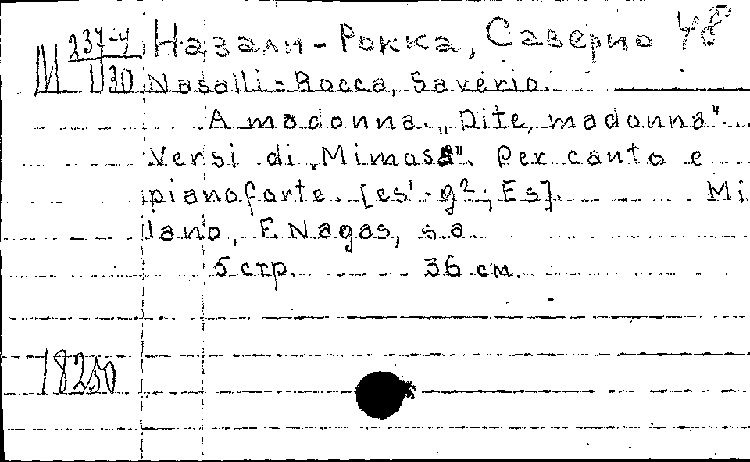 М 337-4 Назали-Рокка, Саверио 48
1130 Nasalli-Rocca, Saverio.
A madonna. „Dite, madonna".
Versi di „Mimosa". Per canto e
pianoforte. [es¹-g²; Es]. Mi
lano, F. Nagas, s.a.
5 стр. 36 см.
18250